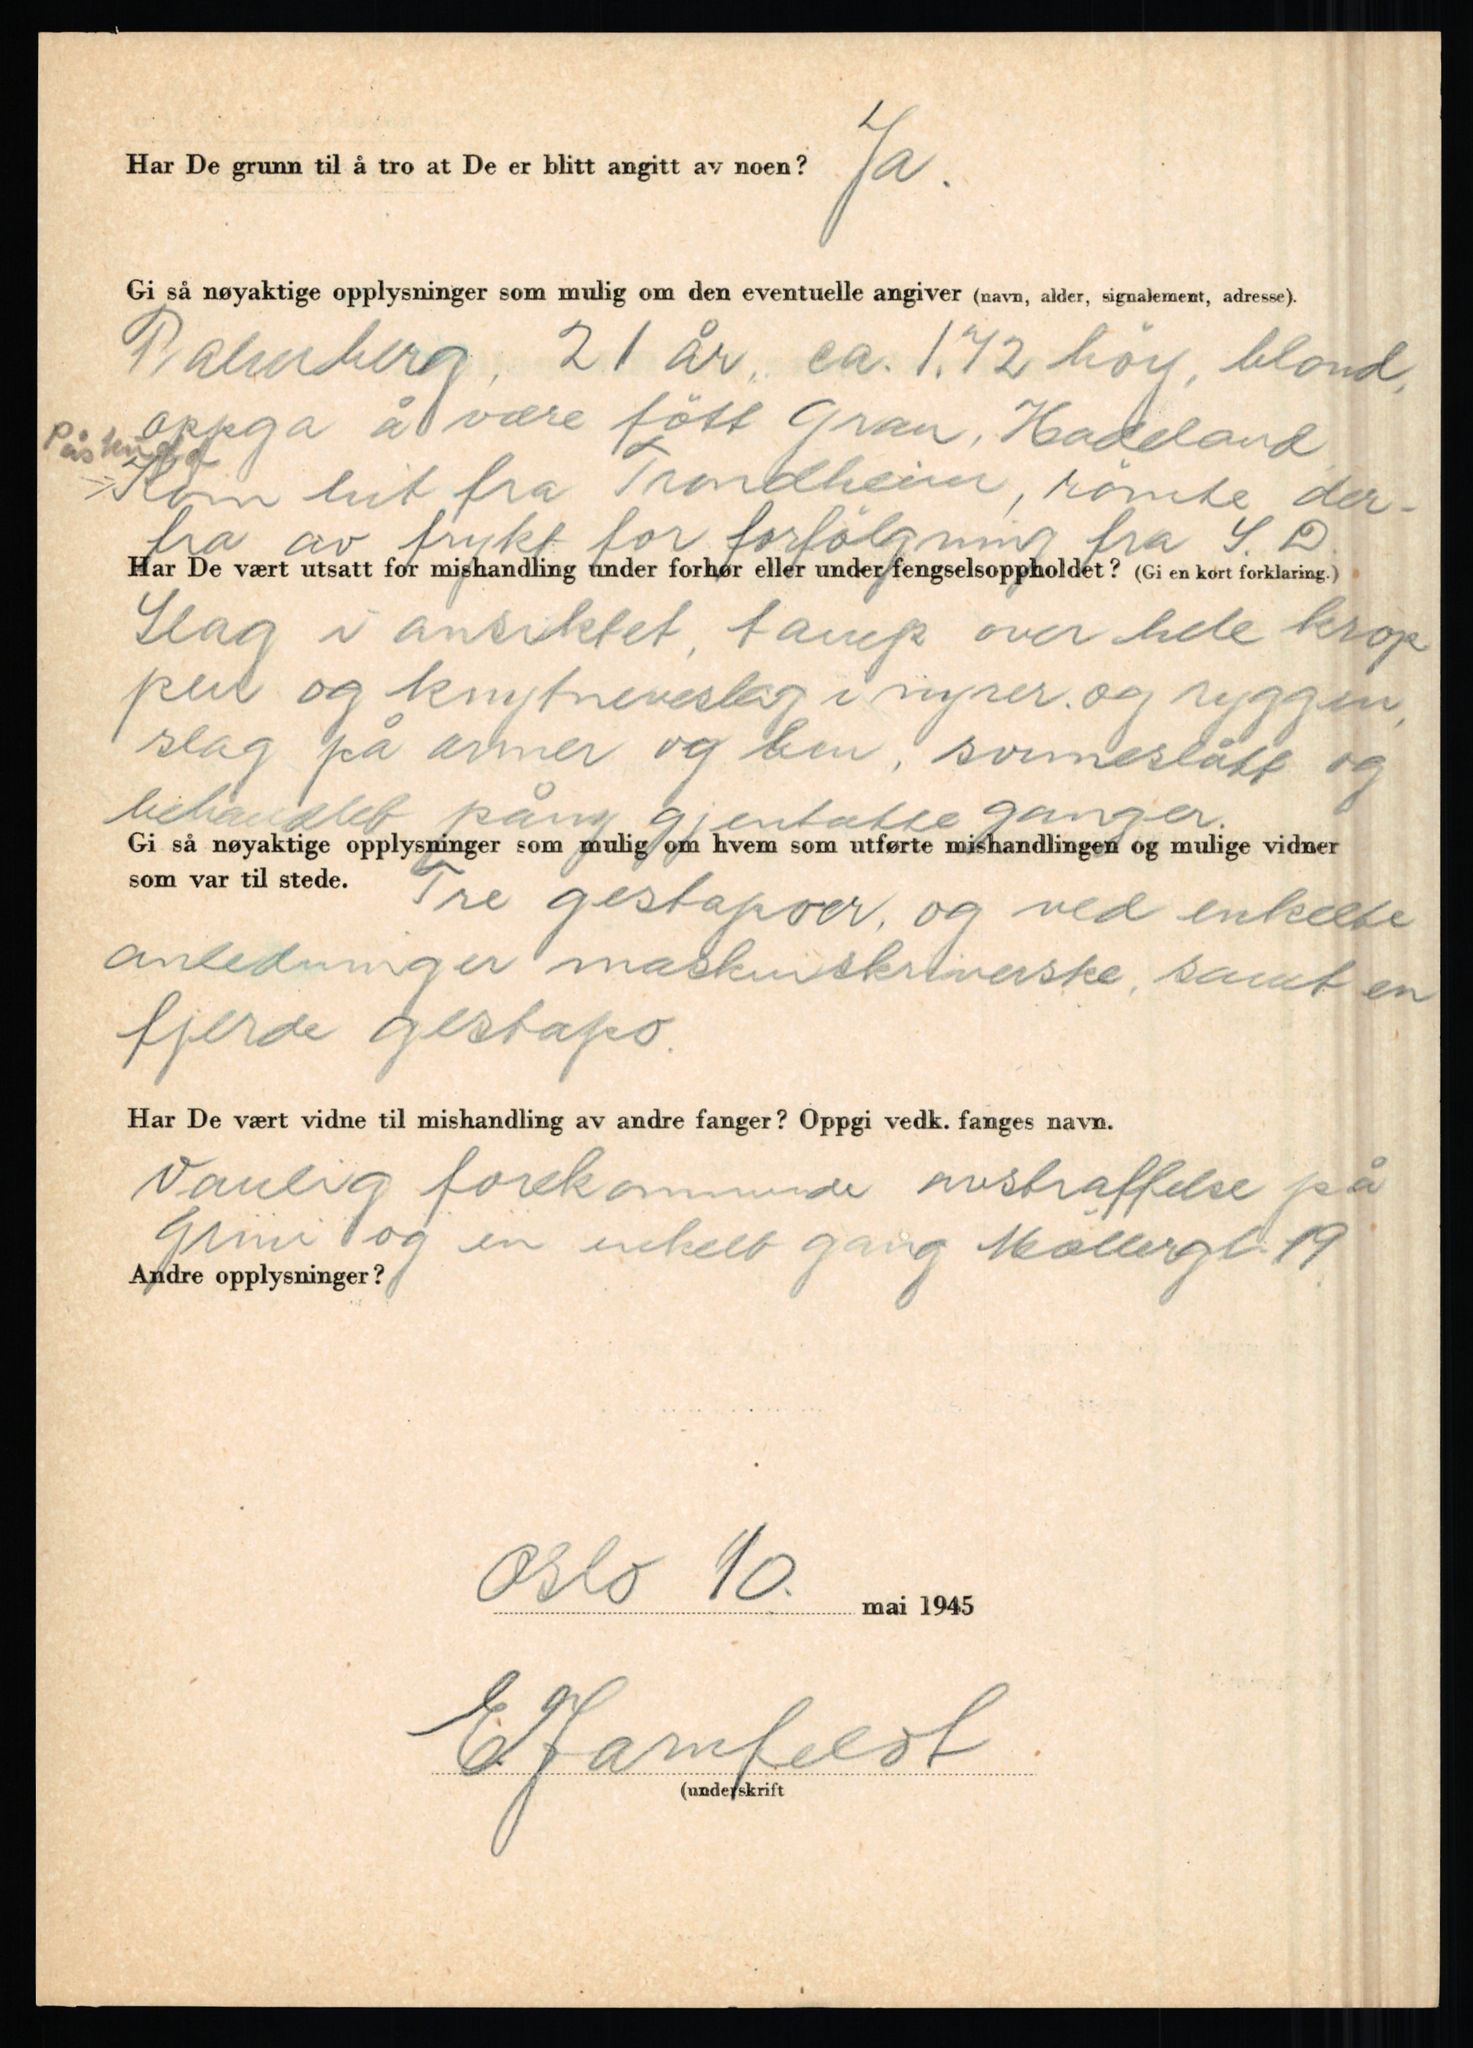 Har De grunn til å tro at De er blitt angitt av noen? Ja.
Gi så nøyaktige opplysninger som mulig om den eventuelle angiver (navn, alder, signalement, adresse).
21 år, ca. 1.72 höy, blond,
oppga å være fött Gran, Hadeland
Påstund
Kom hit fra Trondheim, römte der-
fra av frykt for forfölgning fra S.D.
Har De vært utsatt for mishandling under forhør eller under fengselsoppholdet? (Gi en kort forklaring.)
Slag i ansiktet, tamp over hele krop
pen og knytneveslag i nyrer og ryggen,
slag på armer og ben, svimeslått og
behandlet påny gjentatte ganger.
Gi så nøyaktige opplysninger som mulig om hvem som utførte mishandlingen og mulige vidner
som var til stede. Tre gestapoer, og ved enkelte
anledninger maskinskriverske, samt en
fjerde gestapo.
Har De vært vidne til mishandling av andre fanger? Oppgi vedk. fanges navn.
Vanlig forekommende avstraffelse på
Grini og en enkelt gang Möllergt. 19
Andre opplysninger?
Oslo 10. mai 1945
E. Jarnfeldt
(underskrift